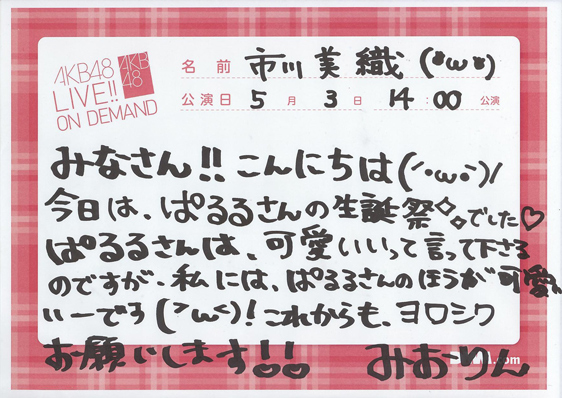 AKB48
LIVE!!
ON DEMAND
AKB
48
名前 市川美織(*ω*)
公演日 5月 3日 14:00 公演
みなさん!!こんにちは(´・ω・`)/
今日は、ぱるるさんの生誕祭✧✧でした♡
ぱるるさんは、可愛いいって言って下さる
のですが、私には、ぱるるさんのほうが可愛い
いーです(>ω<)!これからも、ヨロシク
お願いします!! みおりん
.com